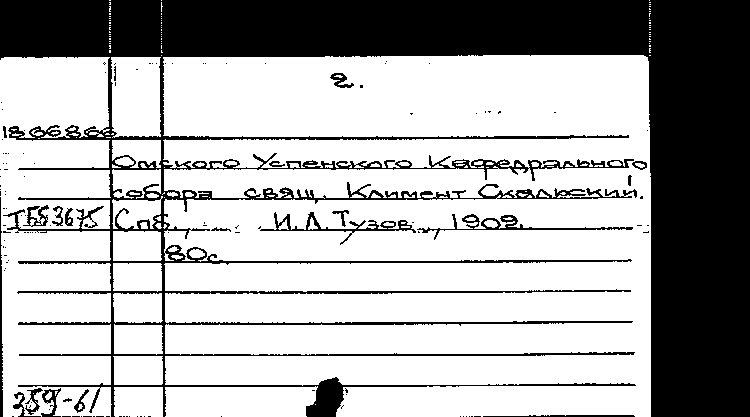 2.
1866866
Омского Успенского Кафедрального
собора свящ. Климент Скальский.
Спб., И.Л.Тузов, 1909.
80с.
359-61